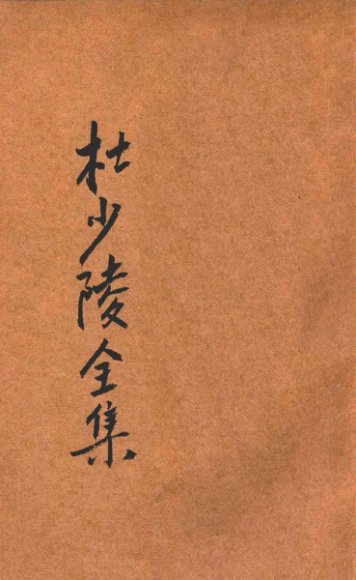 杜少陵全集